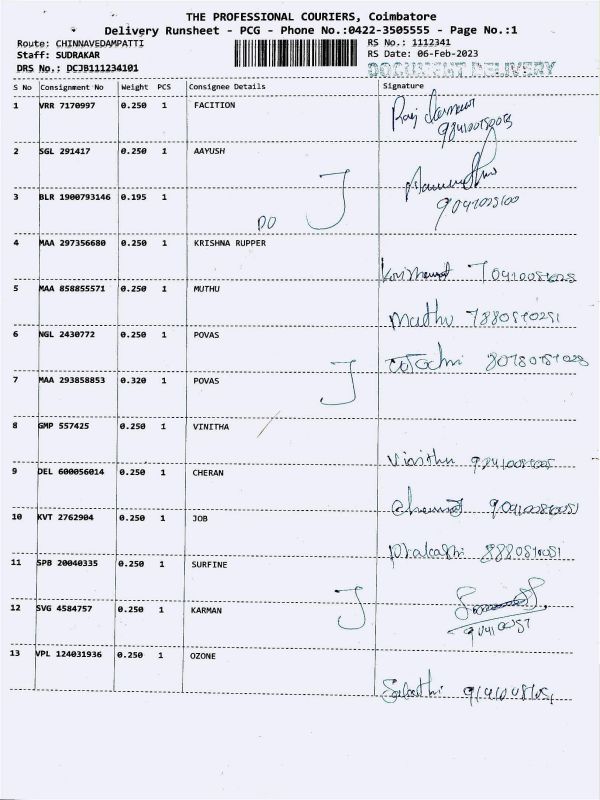 THE PROFESSIONAL COURIERS, Coimbatore
Delivery Runsheet - PCG - Phone No.:0422-3505555 - Page No.:1
Route: CHINNAVEDAMPATTI RS No.: 1112341
Staff: SUDRAKAR RS Date: 06-Feb-2023
DRS No.: DCJB111234101 DOCUMENT DELIVERY
S No Consignment No Weight PCS Consignee Details Signature
1 VRR 7170997 0.250 1 FACITION
2 SGL 291417 0.250 1 AAYUSH
3 BLR 1900793146 0.195 1
DO
4 MAA 297356680 0.250 1 KRISHNA RUPPER
5 MAA 858855571 0.250 1 MUTHU
Muthu 7880570251
6 NGL 2430772 0.250 1 POVAS
7 MAA 293858853 0.320 1 POVAS
8 GMP 557425 0.250 1 VINITHA
Vinitha
9 DEL 600056014 0.250 1 CHERAN
10 KVT 2762904 0.250 1 JOB
11 SPB 20040335 0.250 1 SURFINE
12 SVG 4584757 0.250 1 KARMAN
13 VPL 124031936 0.250 1 OZONE